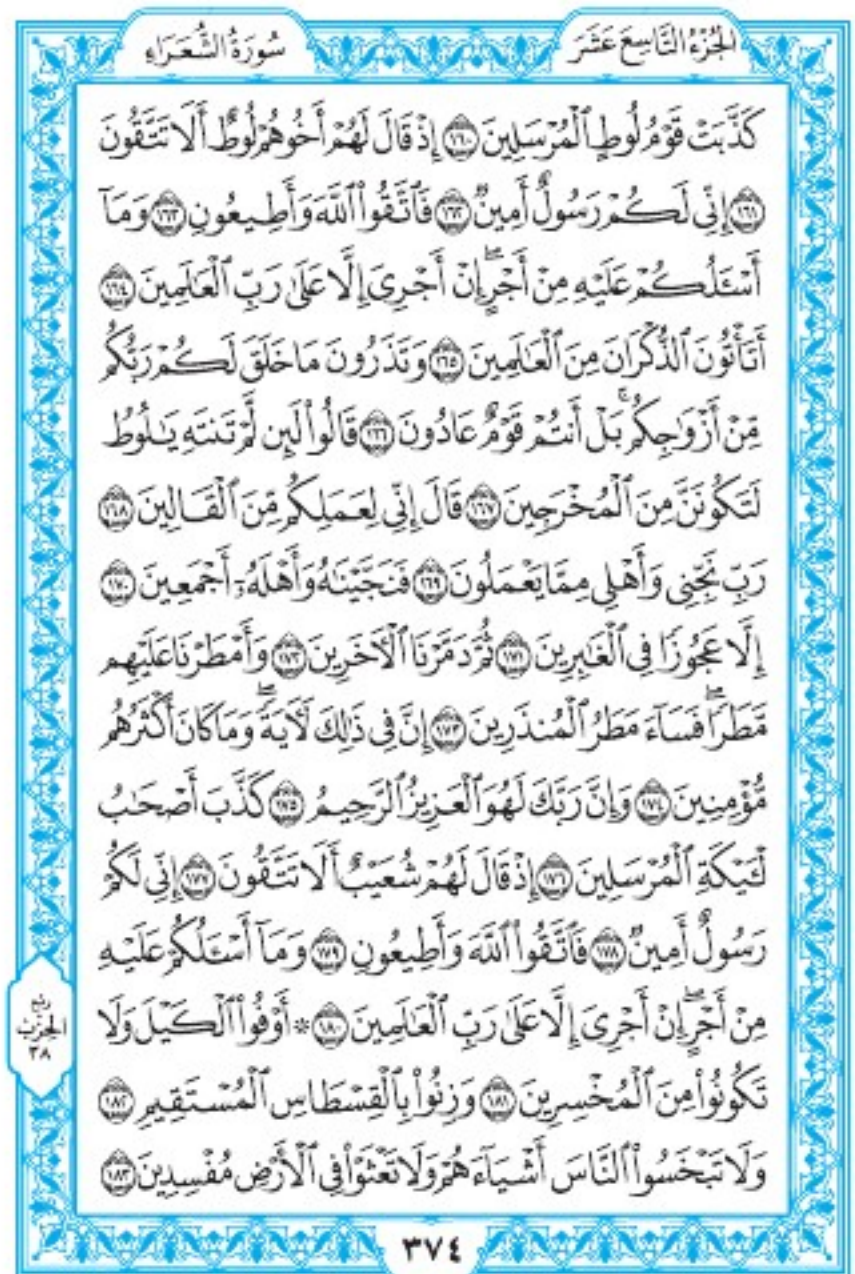 الجُزْءُ التَّاسِعَ عَشَرَ
سُورَةُ الشُّعَرَاءِ
كَذَّبَتْ قَوْمُ لُوطٍ ٱلْمُرْسَلِينَ ١٦٠ إِذْ قَالَ لَهُمْ أَخُوهُمْ لُوطٌ أَلَا تَتَّقُونَ
١٦١ إِنِّى لَكُمْ رَسُولٌ أَمِينٌ ١٦٢ فَٱتَّقُوا۟ ٱللَّهَ وَأَطِيعُونِ ١٦٣ وَمَآ
أَسْـَٔلُكُمْ عَلَيْهِ مِنْ أَجْرٍ ۖ إِنْ أَجْرِىَ إِلَّا عَلَىٰ رَبِّ ٱلْعَـٰلَمِينَ ١٦٤
أَتَأْتُونَ ٱلذُّكْرَانَ مِنَ ٱلْعَـٰلَمِينَ ١٦٥ وَتَذَرُونَ مَا خَلَقَ لَكُمْ رَبُّكُم
مِّنْ أَزْوَٰجِكُم ۚ بَلْ أَنتُمْ قَوْمٌ عَادُونَ ١٦٦ قَالُوا۟ لَئِن لَّمْ تَنتَهِ يَـٰلُوطُ
لَتَكُونَنَّ مِنَ ٱلْمُخْرَجِينَ ١٦٧ قَالَ إِنِّى لِعَمَلِكُم مِّنَ ٱلْقَالِينَ ١٦٨
رَبِّ نَجِّنِى وَأَهْلِى مِمَّا يَعْمَلُونَ ١٦٩ فَنَجَّيْنَـٰهُ وَأَهْلَهُۥٓ أَجْمَعِينَ ١٧٠
إِلَّا عَجُوزًا فِى ٱلْغَـٰبِرِينَ ١٧١ ثُمَّ دَمَّرْنَا ٱلْـَٔاخَرِينَ ١٧٢ وَأَمْطَرْنَا عَلَيْهِم
مَّطَرًا ۖ فَسَآءَ مَطَرُ ٱلْمُنذَرِينَ ١٧٣ إِنَّ فِى ذَٰلِكَ لَـَٔايَةً ۖ وَمَا كَانَ أَكْثَرُهُم
مُّؤْمِنِينَ ١٧٤ وَإِنَّ رَبَّكَ لَهُوَ ٱلْعَزِيزُ ٱلرَّحِيمُ ١٧٥ كَذَّبَ أَصْحَـٰبُ
لْـَٔيْكَةِ ٱلْمُرْسَلِينَ ١٧٦ إِذْ قَالَ لَهُمْ شُعَيْبٌ أَلَا تَتَّقُونَ ١٧٧ إِنِّى لَكُمْ
رَسُولٌ أَمِينٌ ١٧٨ فَٱتَّقُوا۟ ٱللَّهَ وَأَطِيعُونِ ١٧٩ وَمَآ أَسْـَٔلُكُمْ عَلَيْهِ
مِنْ أَجْرٍ ۖ إِنْ أَجْرِىَ إِلَّا عَلَىٰ رَبِّ ٱلْعَـٰلَمِينَ ١٨٠ * أَوْفُوا۟ ٱلْكَيْلَ وَلَا
تَكُونُوا۟ مِنَ ٱلْمُخْسِرِينَ ١٨١ وَزِنُوا۟ بِٱلْقِسْطَاسِ ٱلْمُسْتَقِيمِ ١٨٢
وَلَا تَبْخَسُوا۟ ٱلنَّاسَ أَشْيَآءَهُمْ وَلَا تَعْثَوْا۟ فِى ٱلْأَرْضِ مُفْسِدِينَ ١٨٣
ربع
الحزب
٣٨
٣٧٤